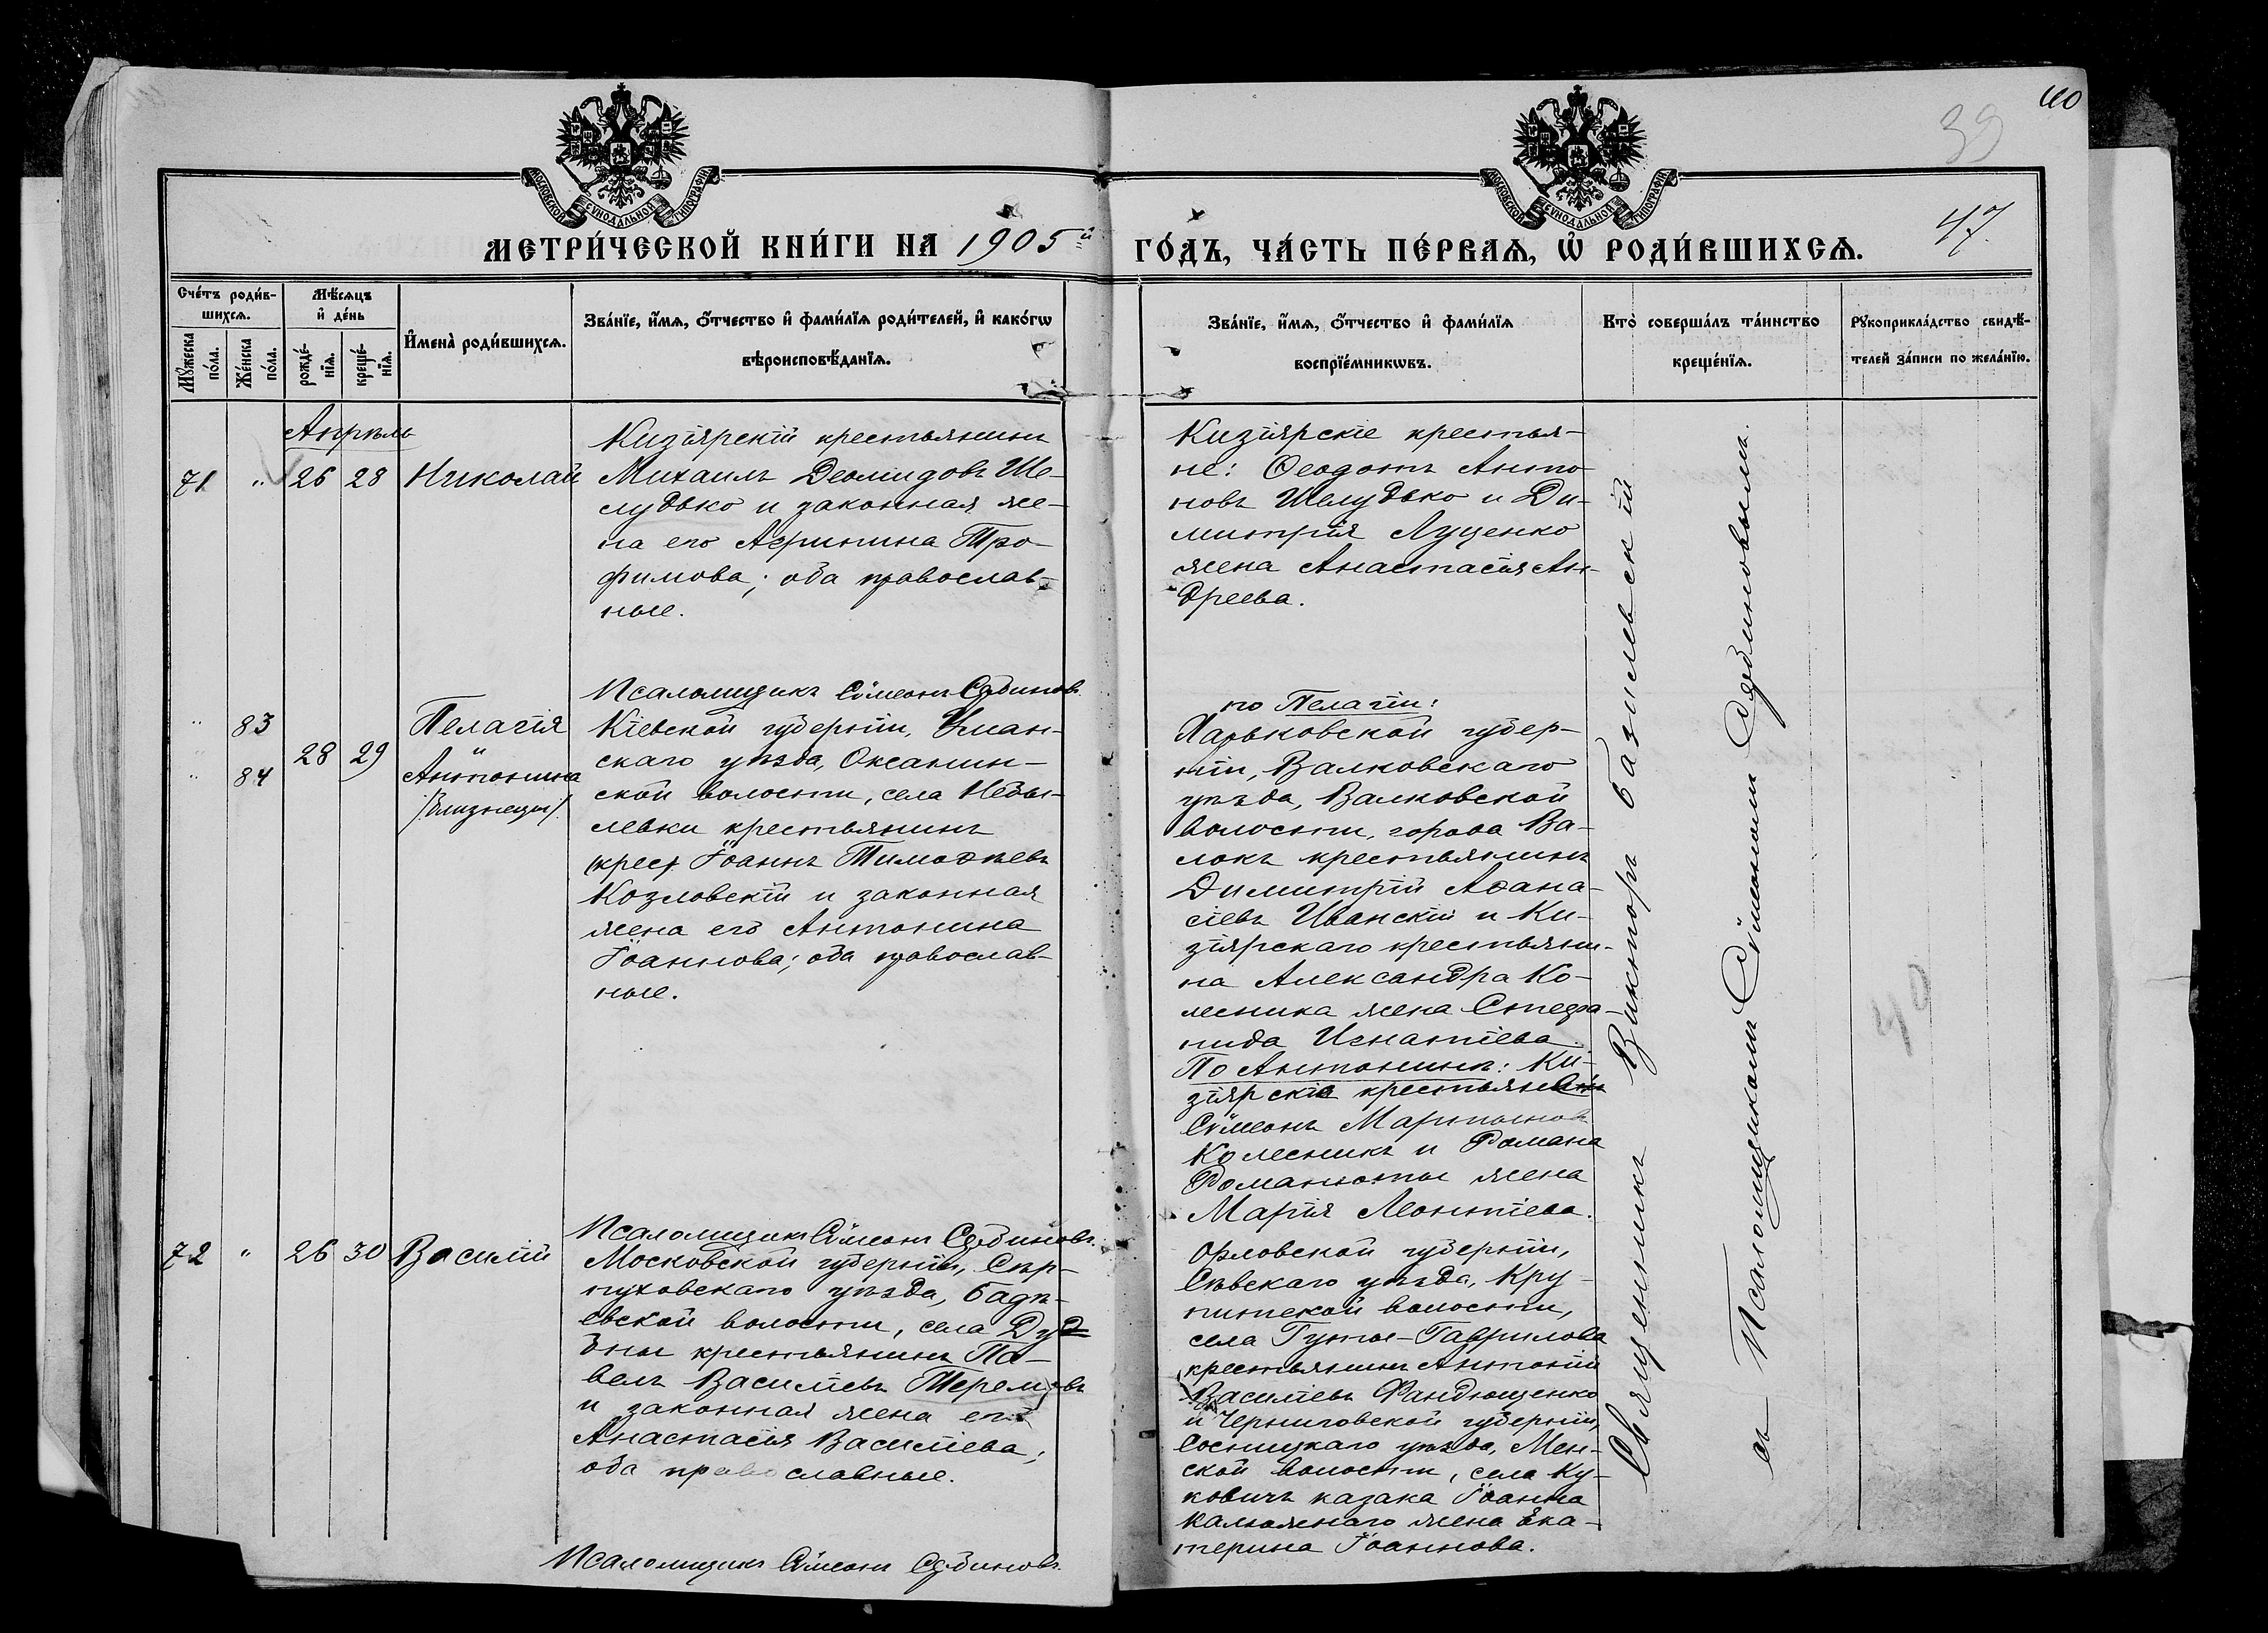 40
39
47
МОСКОВСКОЙ СѴНОДАЛЬНОЙ ТИПОГРАФІИ
МОСКОВСКОЙ СѴНОДАЛЬНОЙ ТИПОГРАФІИ
МЕТРИ́ЧЕСКОЙ КНИ́ГИ НА 1905й ГО́ДЪ, ЧА́СТЬ ПЕ́РВАѦ, Ѡ҆ РОДИ́ВШИХСѦ.
Сче́тъ роди́в-
шихсѧ.
Мꙋжеска по́ла.
Же́нска по́ла.
Мѣ́сѧцъ
и҆ де́нь
рожде́-
нїѧ.
креще́-
нїѧ.
И҆мена̀ роди́вшихсѧ.
Зва́нїе, и҆́мѧ, ѻ҆́тчество и҆ фами́лїѧ роди́телей, и҆ како́гѡ
вѣроисповѣ́данїѧ.
Зва́нїе, и҆́мѧ, ѻ҆́тчество и҆ фами́лїѧ
воспрїе́мникѡвъ.
Кто̀ соверша́лъ та́инство
креще́нїѧ.
Рꙋкоприкла́дство свидѣ́-
телей за́писи по жела́нїю.
Апрѣль
71 " 26 28 Николай
Кизіярскій крестьянинъ
Михаилъ Деомидовъ Ше-
лудько и законная же-
на его Агрипина Тро-
фимова; оба православ-
ные.
Кизіярскіе крестья-
не: Ѳеодотъ Анто-
новъ Шелудько и Ди-
митрія Луценко
жена Анастасія Ан-
дреева.
Псаломщикъ Сѵмеонъ Сѣдиновъ.
" 83
" 84
28 29
Пелагія
и
Антонина
/близнецы/
Кіевской губерніи, Уман-
скаго уѣзда, Оксанин-
ской волости, села Небы-
левки крестьянинъ
(крест. Іоаннъ Тимоѳеевъ
Козловскій и законная
жена его Антонина
Іоаннова; оба православ-
ные.
по Пелагіи:
Харьковской губер-
ніи, Валковскаго
уѣзда, Валковской
волости, города Ва-
локъ крестьянинъ
Димитрій Аѳана-
сіевъ Иванскій и Ки-
зіярскаго крестьяни-
на Александра Ко-
лесника жена Стефа-
нида Игнатіева.
По Антонинѣ: Ки-
зіярскіе крестьяне
Сѵмеонъ Мартыновъ
Колесникъ и Романа
Романюты жена
Марія Леонтіева.
Псаломщикъ Сѵмеонъ Сѣдиновъ.
72 " 26 30 Василій
Московской губерніи, Сер-
пуховскаго уѣзда, Бадѣ-
евской волости, села Дуд-
ны крестьянинъ Па-
велъ Василіевъ Теремовъ
и законная жена его
Анастасія Василіева;
оба православные.
Орловской губерніи,
Сѣвскаго уѣзда, Кру-
питской волости,
села Гуты-Гаврилова
крестьянинъ Антоній
Василіевъ Фандющенко
и Черниговской губерніи,
Сосницкаго уѣзда, Мен-
ской волости, села Ку-
ковичъ казака Іоанна
Калюжнаго жена Ека-
терина Іоаннова.
Псаломщикъ Сѵмеонъ Сѣдиновъ.
Священникъ Викторъ Базилевскій
съ Псаломщикомъ Сѵмеономъ Сѣдиновымъ.
40